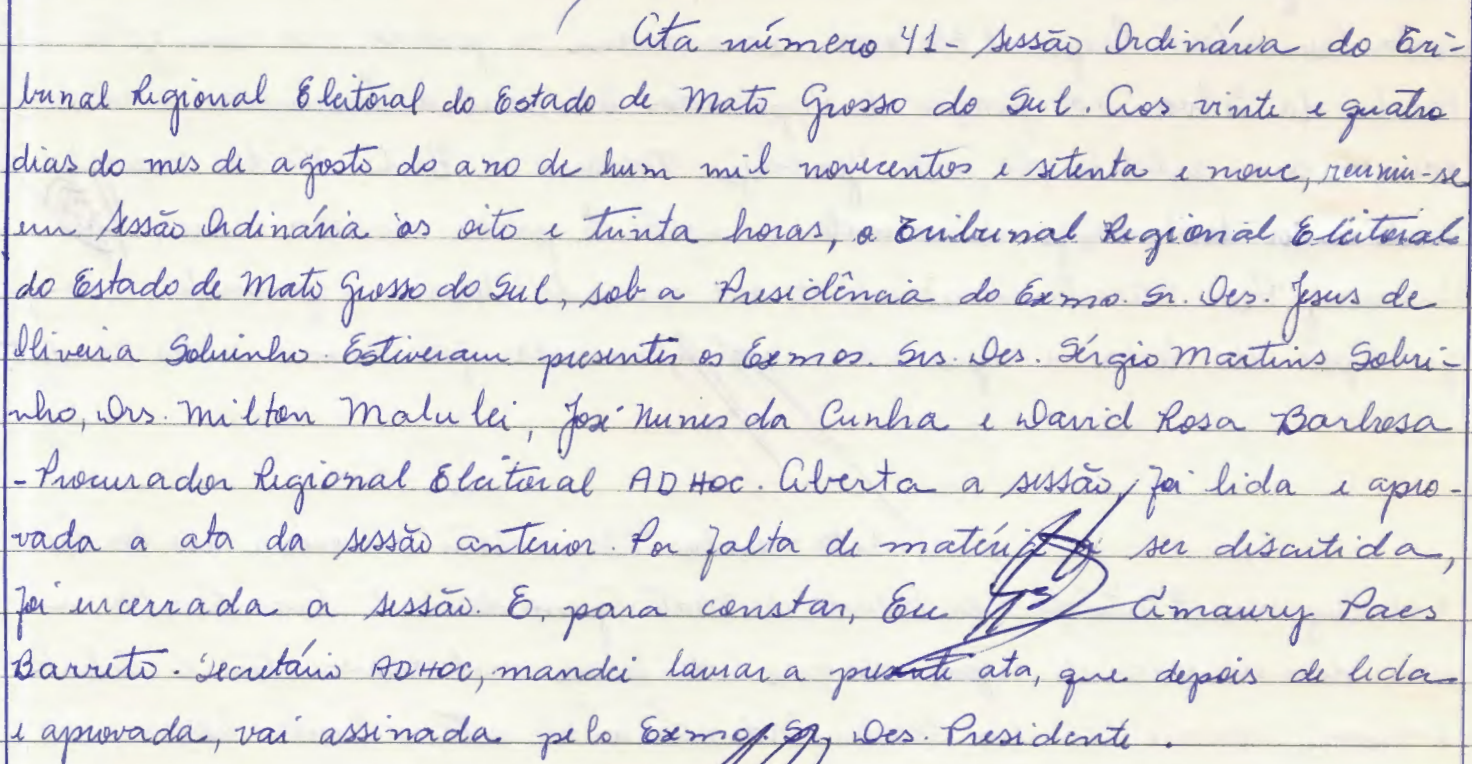 Ata número 41 - Sessão Ordinária do Tri-
bunal Regional Eleitoral do Estado de Mato Grosso do Sul. Aos vinte e quatro
dias do mes de agosto do ano de hum mil novecentos e setenta e nove, reuniu-se
em Sessão Ordinária às oito e trinta horas, o Tribunal Regional Eleitoral
do Estado de Mato Grosso do Sul, sob a Presidência do Exmo. Sr. Des. Jesus de
Oliveira Sobrinho. Estiveram presentes os Exmos. Srs. Des. Sérgio Martins Sobri-
nho, Drs. Milton Malulei, José Nunes da Cunha e David Rosa Barbosa
- Procurador Regional Eleitoral AD HOC. Aberta a sessão, foi lida e apro-
vada a ata da sessão anterior. Por falta de matéria a ser discutida,
foi encerrada a sessão. E, para constar, Eu Amaury Paes
Barreto. Secretário AD HOC, mandei lavrar a presente ata, que depois de lida
e aprovada, vai assinada pelo Exmo. Sr. Des. Presidente.